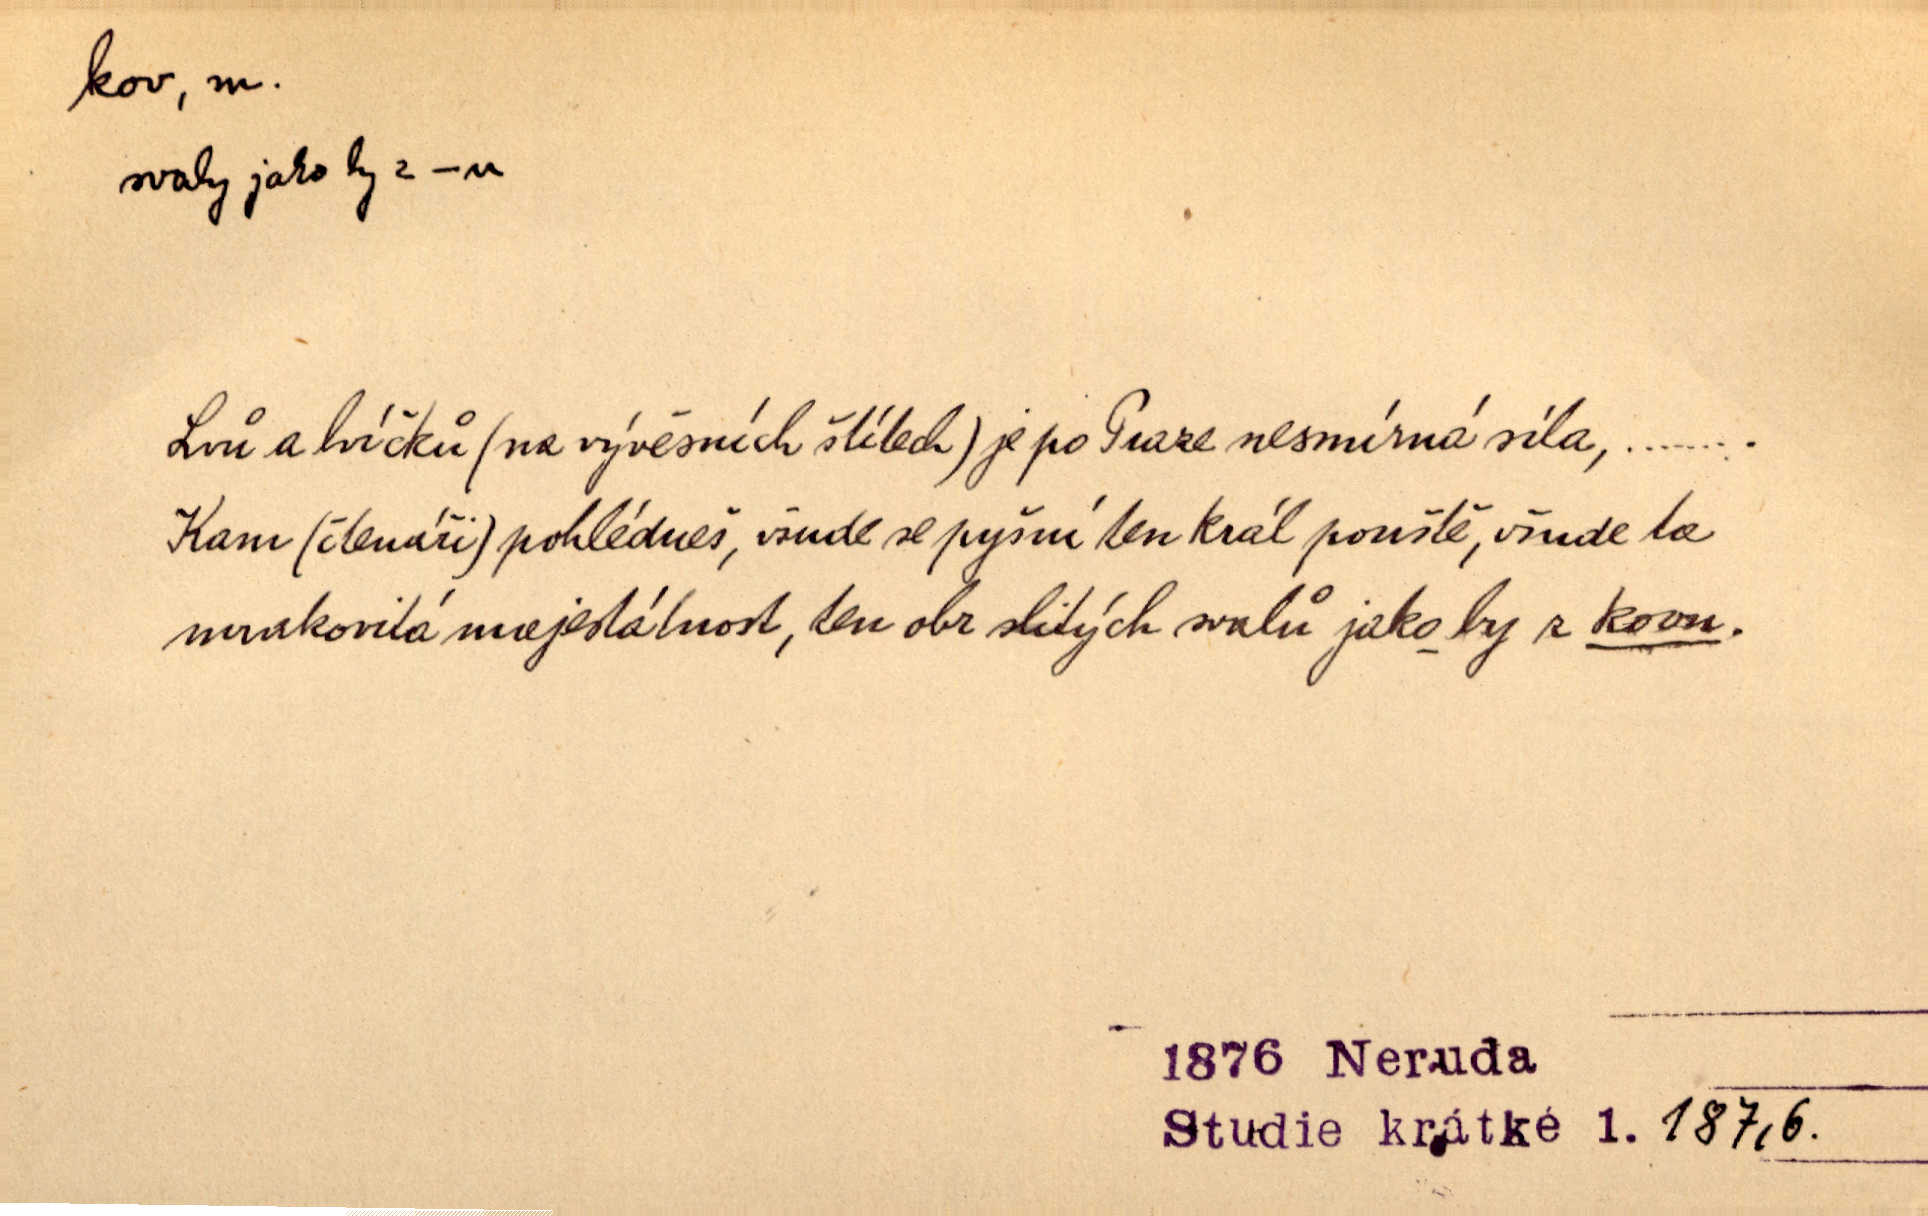 kov, m.
svaly jako by z –u
Lvů a lvíčků (na vývěsních štítech) je po Praze nesmírná síla, .........
Kam (čtenáři) pohlédneš, všude se pyšní ten král pouště, všude ta
mrakovitá majestátnost, ten obr slitých svalů jako by z kovu.
1876 Neruda
Studie krátké 1. 187,6.